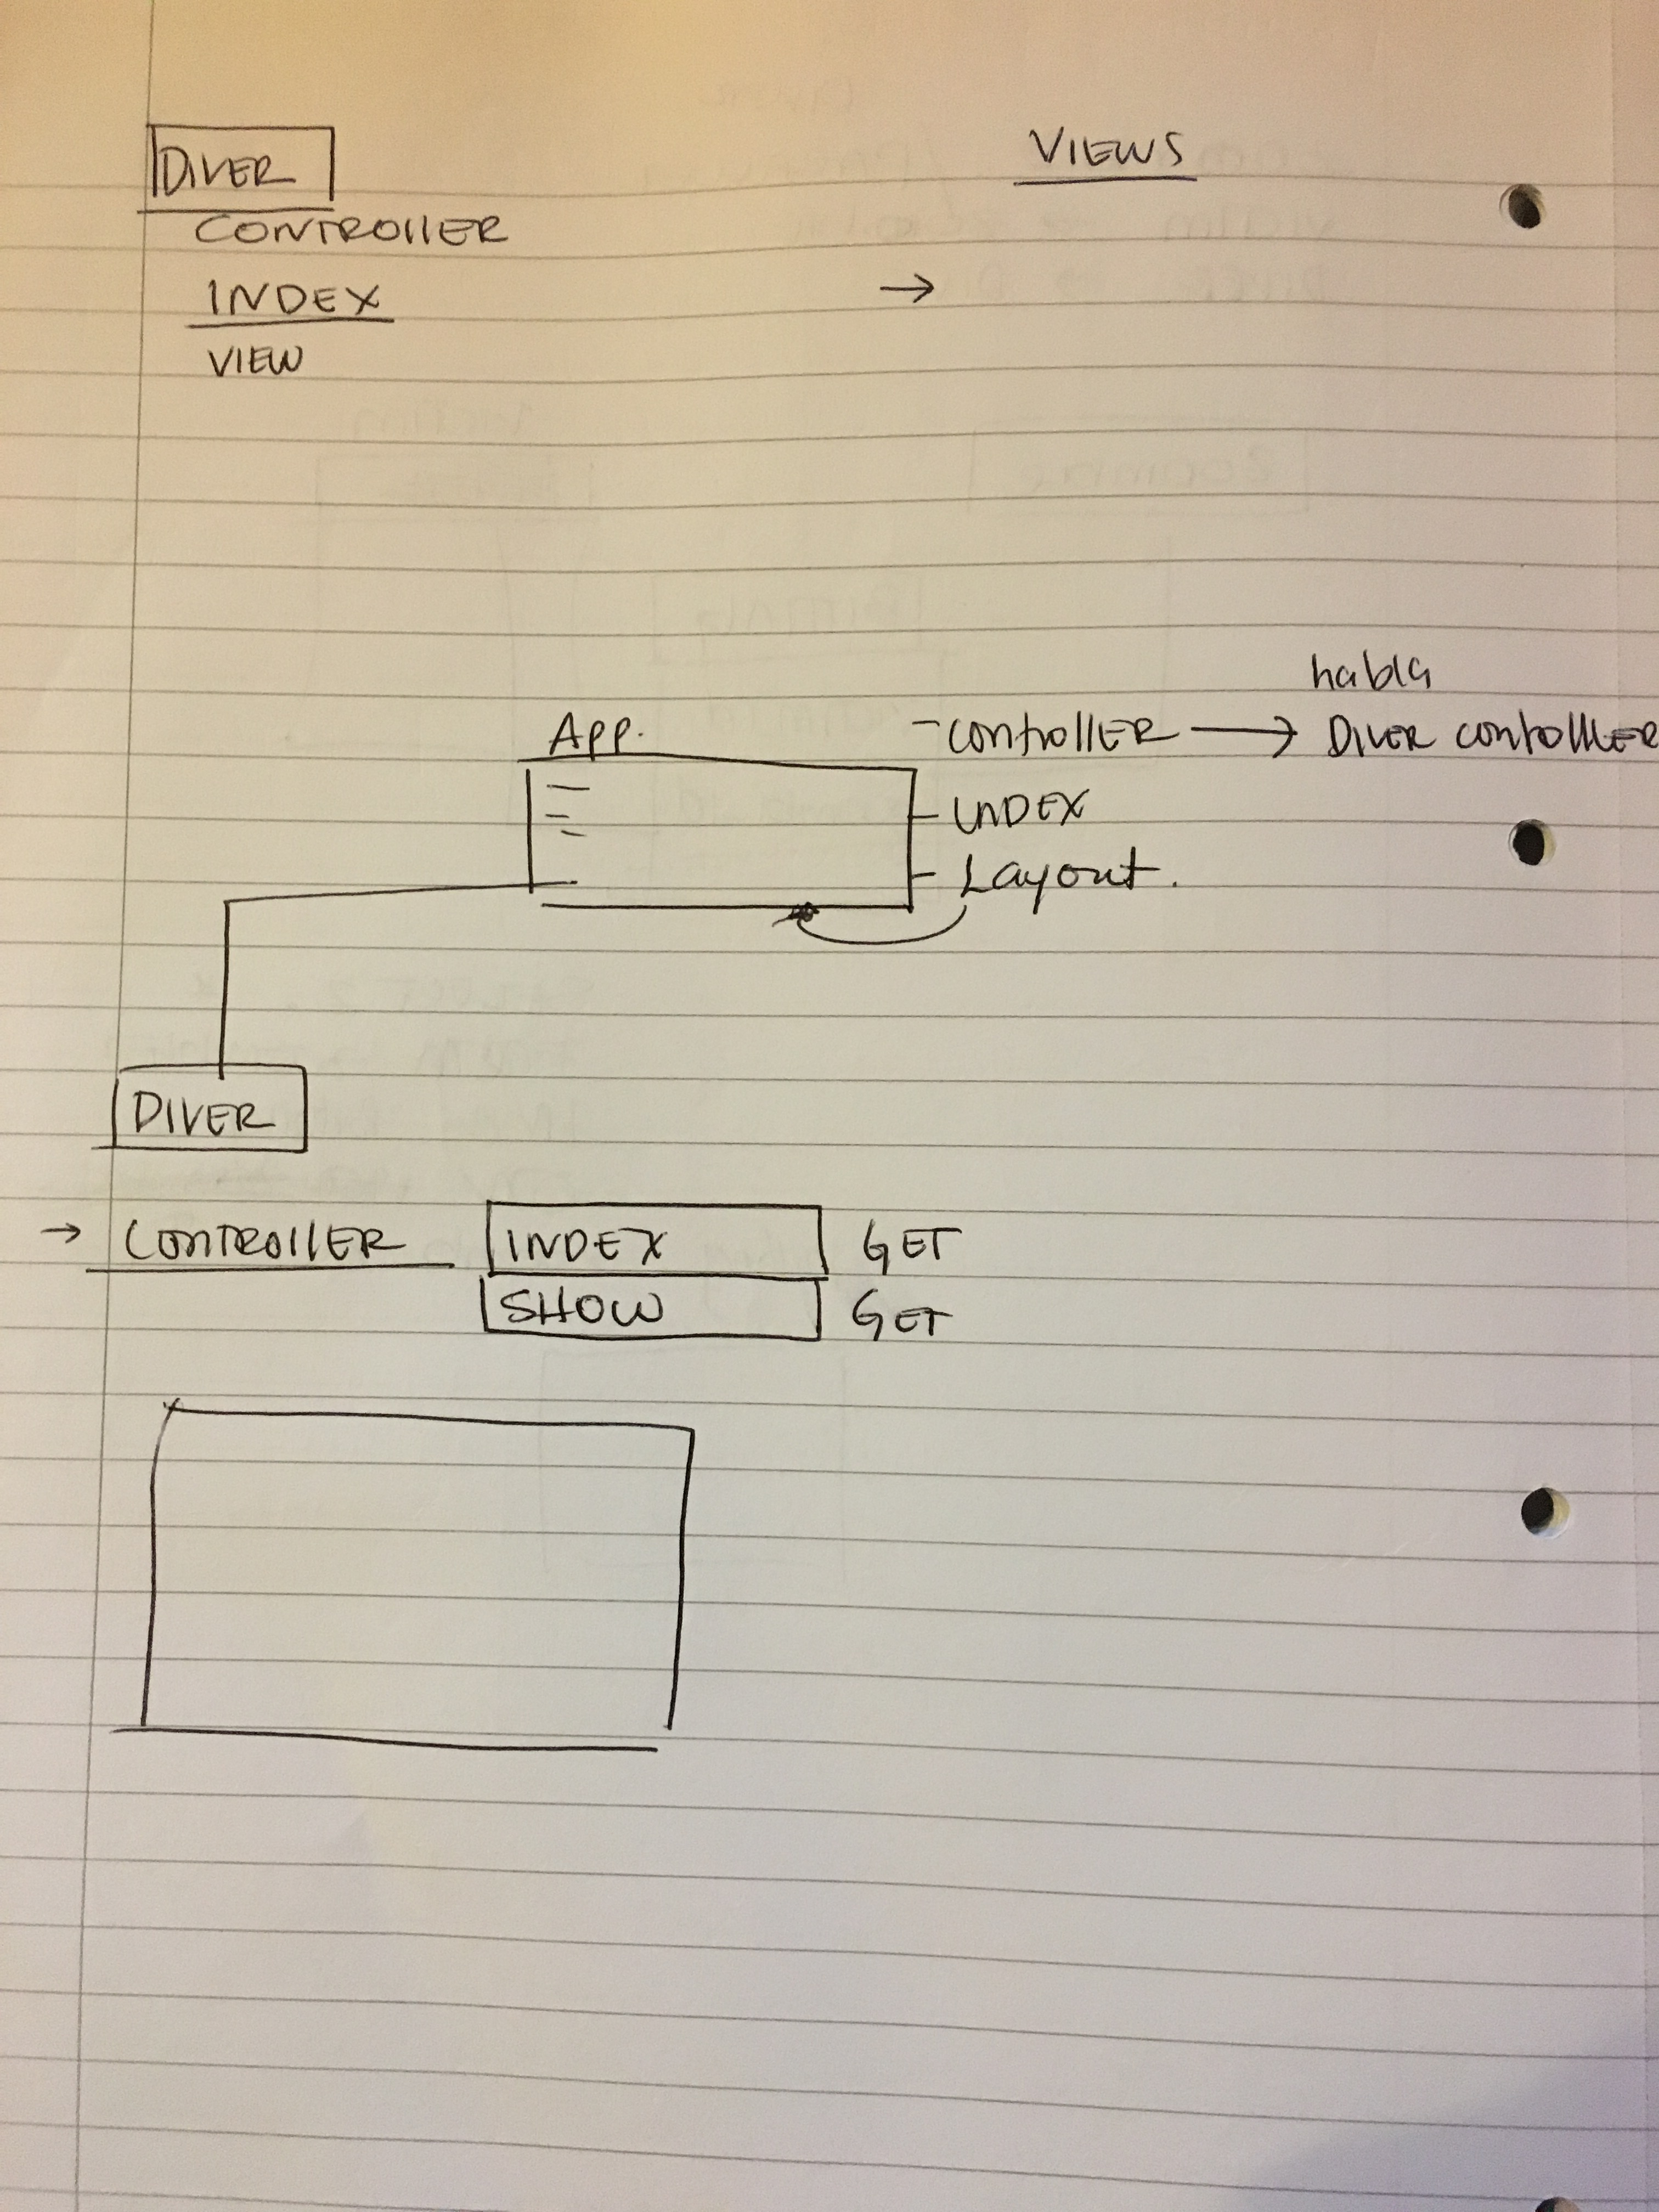 DIVER
VIEWS
CONTROllER
INDEX
→
VIEW
habla
App.
- controllER → DIVER controlllER
INDEX
Layout.
DIVER
→ CONTROllER INDEX GET
SHOW GET